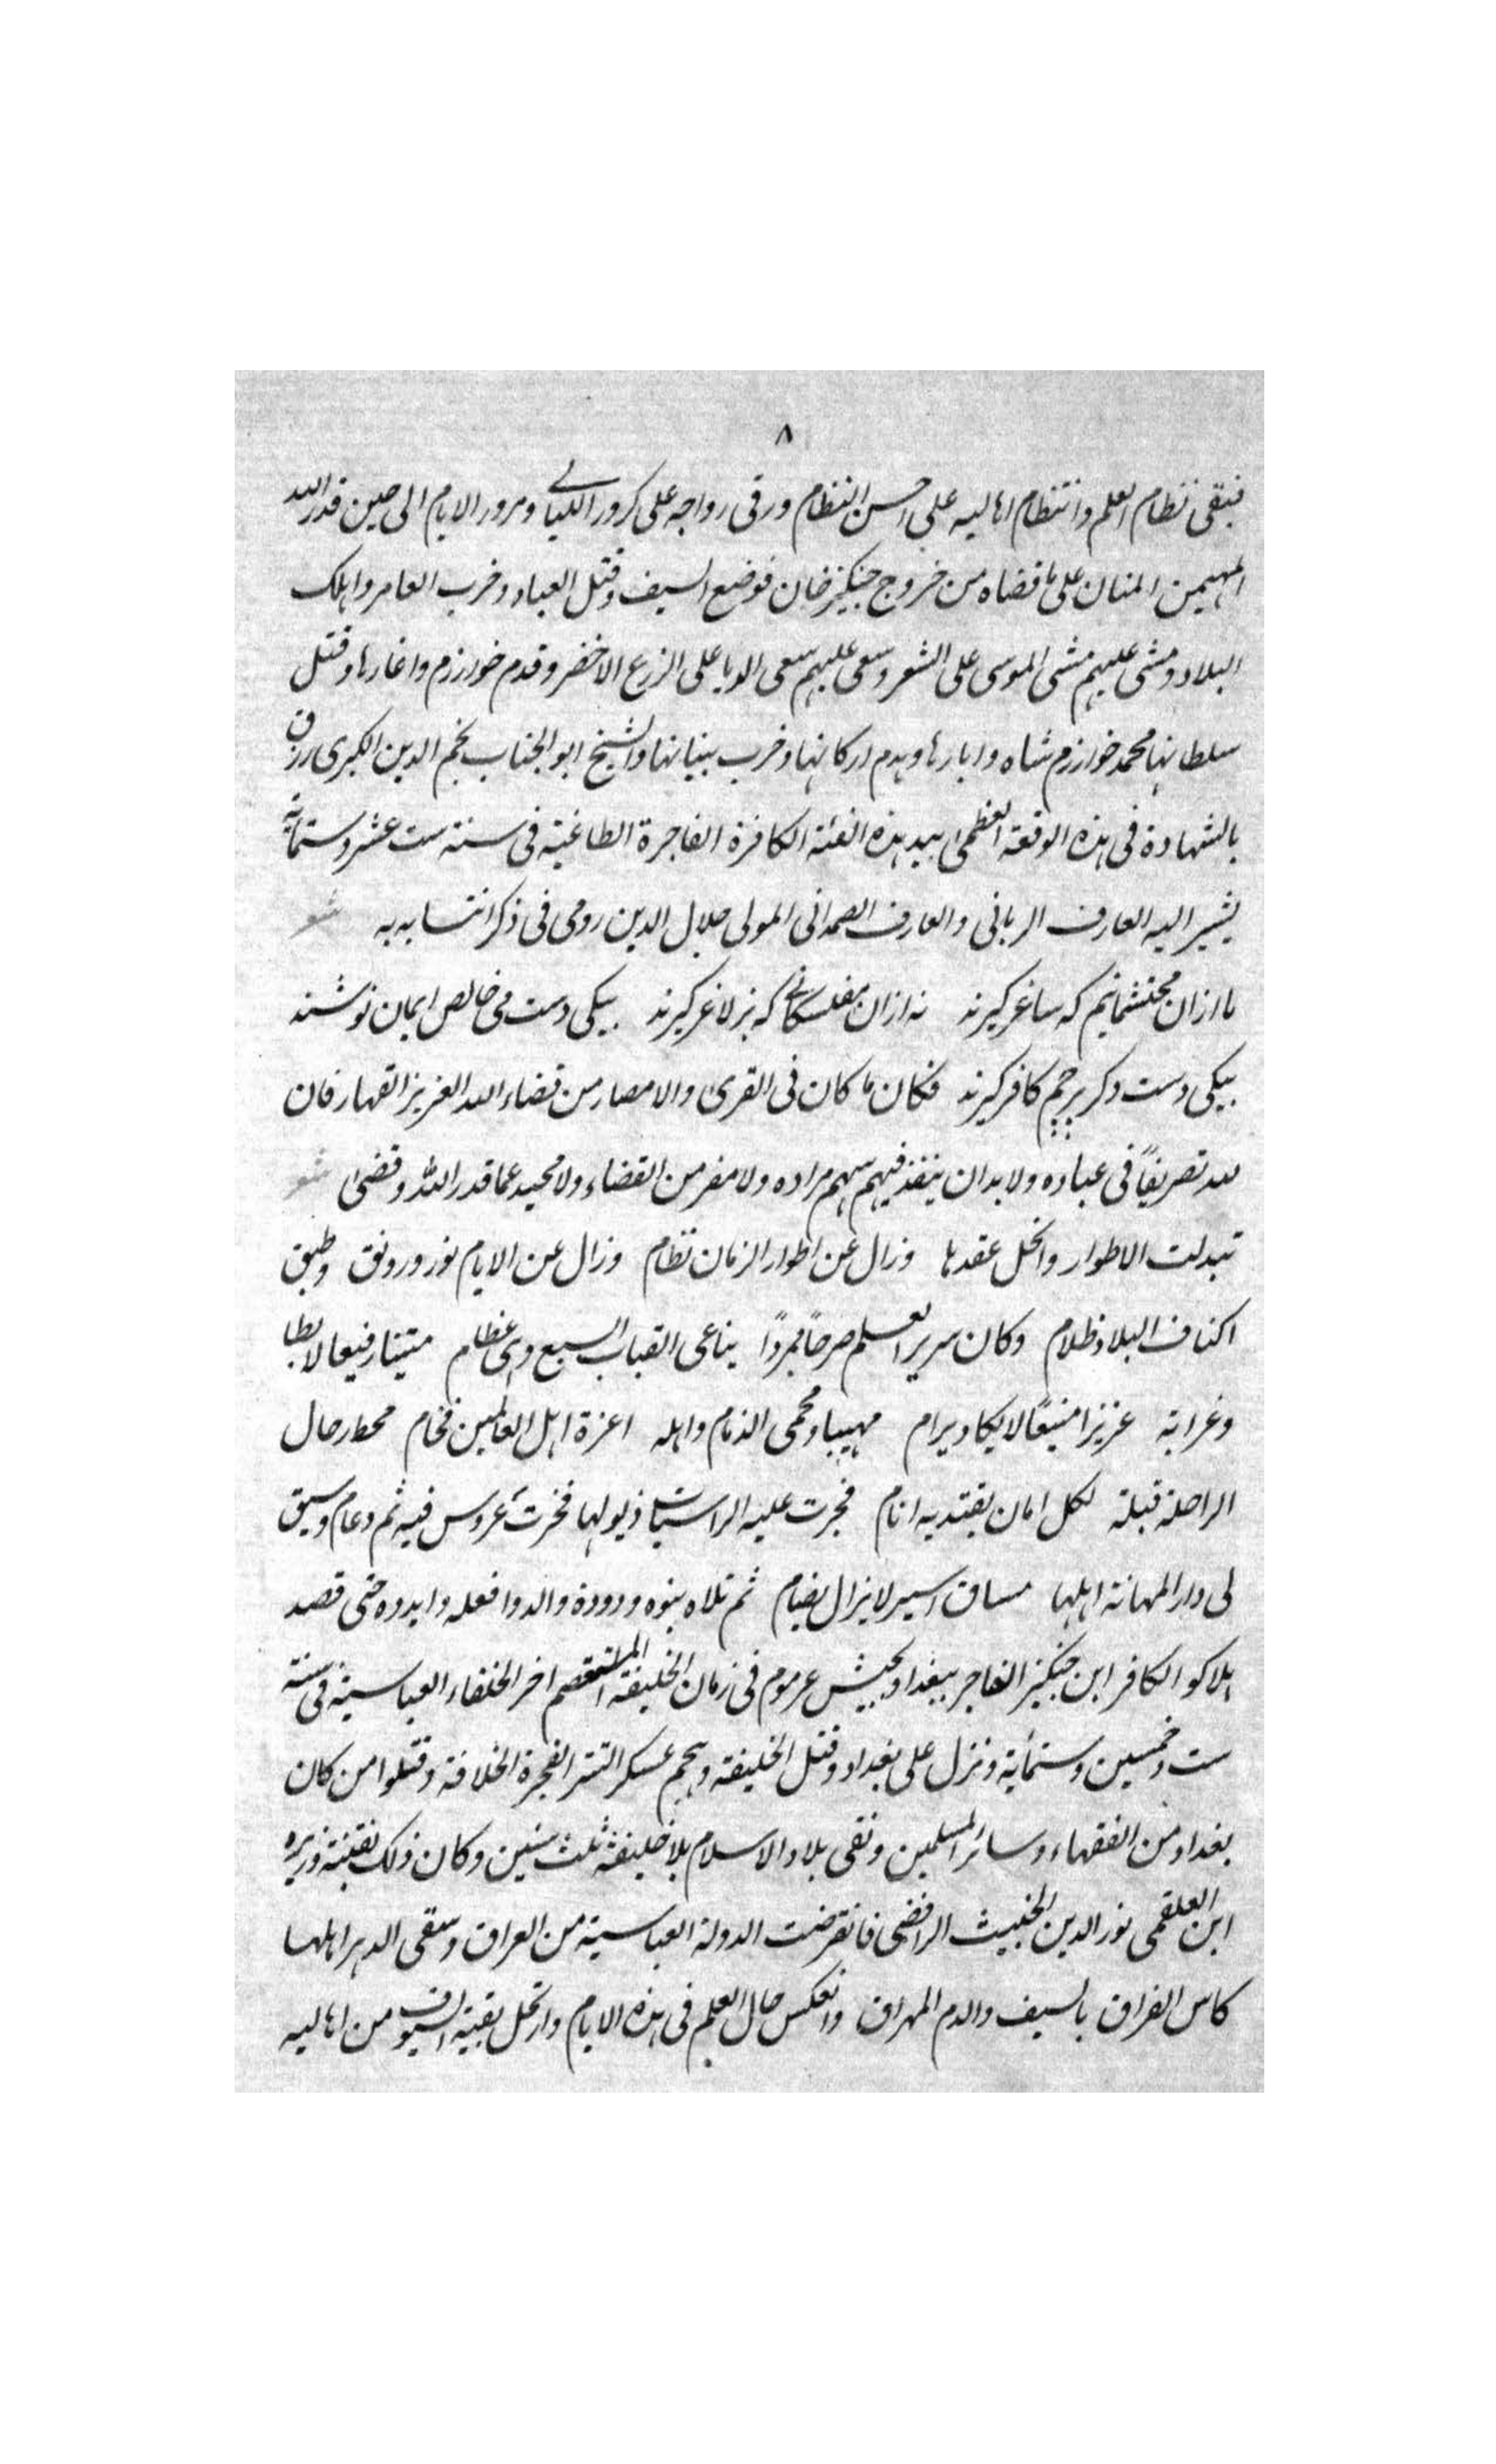 ٨
فبقى نظام العلم وانتظام اهاليه على احسن النظام ورقى رواجه على كرور الليالى ومرور الايام الى حين قدر الله
المهيمن المنان على ما قضاه من خروج جنكيز خان فوضع السيف وقتل العباد وخرب العامر واهلك
البلاد ومشى عليهم مشى الموسى على الشعر وسعى عليهم سعى الدبا على الزرع الاخضر وقدم خوارزم واغارها وقتل
سلطانها محمد خوارزم شاه وابارها وهدم اركانها وخرب بنيانها والشيخ ابو الجناب نجم الدين الكبرى رزق
بالشهادة فى هذه الوقعة العظمى بيد هذه الفئة الكافرة الفاجرة الطاغية فى سنة ست عشر وستمائة
يشير اليه العارف الربانى والعارف الصمدانى المولى جلال الدين رومى فى ذكر انتسابه به شعر
ما ازان محتشمانيم كه ساغر كيرند نه ازان مفلسكانى كه بز لاغر كيرند بيكى دست مى خالص ايمان نوشند
بيكى دست دكر پرچم كافر كيرند فكان ما كان فى القرى والامصار من قضاء الله العزيز القهار فان
لله تصريفًا فى عباده ولا بد ان ينفذ فيهم سهم مراده ولا مفر من القضاء ولا محيد عما قدر الله وقضى شعر
تبدلت الاطوار وانحل عقدها وزال عن اطوار الزمان نظام وزال عن الايام نور ورونق وطبق
اكناف البلاد ظلام وكان سرير العلم صرحًا ممردًا يناغى القباب السبع وهى عظام متينا رفيعا لا يطا
وغرابة عزيزا منيعًا لا يكاد يرام مهيبا ومحمى الذمام واهله اعزة اهل العالمين فخام محط رحال
الراحلة قبلة لكل امان يقتديه انام فجرت عليه الراسيات ذيولها فخرت عروس فيه ثم دعام وسيق
لى دار المهانة اهلها مساق اسير لا يزال يضام ثم تلاه بنوه وددوة والدوا فعله وايدوه حتى قصد
هلاكو الكافر ابن جنكيز الفاجر ببغداد بجيش عرموم فى زمان الخليفة المستعصم اخر الخلفاء العباسية فى سنة
ست وخمسين وستمأية ونزل على بغداد وقتل الخليفة وهجم عسكر التتر الفجرة الخلافة وقتلوا من كان
بغداد من الفقهاء وسائر المسلمين وبقى بلاد الاسلام بلا خليفة ثلث سنين وكان ذلك بفتنة وزيره
ابن العلقمى نور الدين الخبيث الرافضى فانقرضت الدولة العباسية من العراق وسقى الدهر اهلها
كاس الفراق بالسيف والدم المهراق وانعكس حال العلم فى هذه الايام وارتحل بقية السيوف من اهاليه